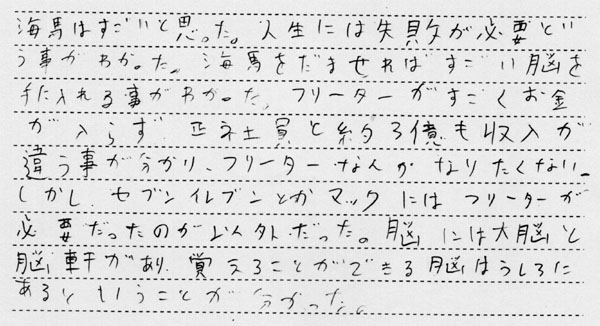 海馬はすごいと思った。人生には失敗が必要とい
う事がわかった。海馬をだませればすごい脳を
手に入れる事がわかった。フリーターがすごくお金
が入らず正社員と約3億も収入が
違う事が分かり、フリーターなんかなりたくない。
しかし、セブンイレブンとかマックにはフリーターが
必要だったのが以外だった。脳には大脳と
脳幹があり、覚えることができる脳はうしろに
あるということが分かった。